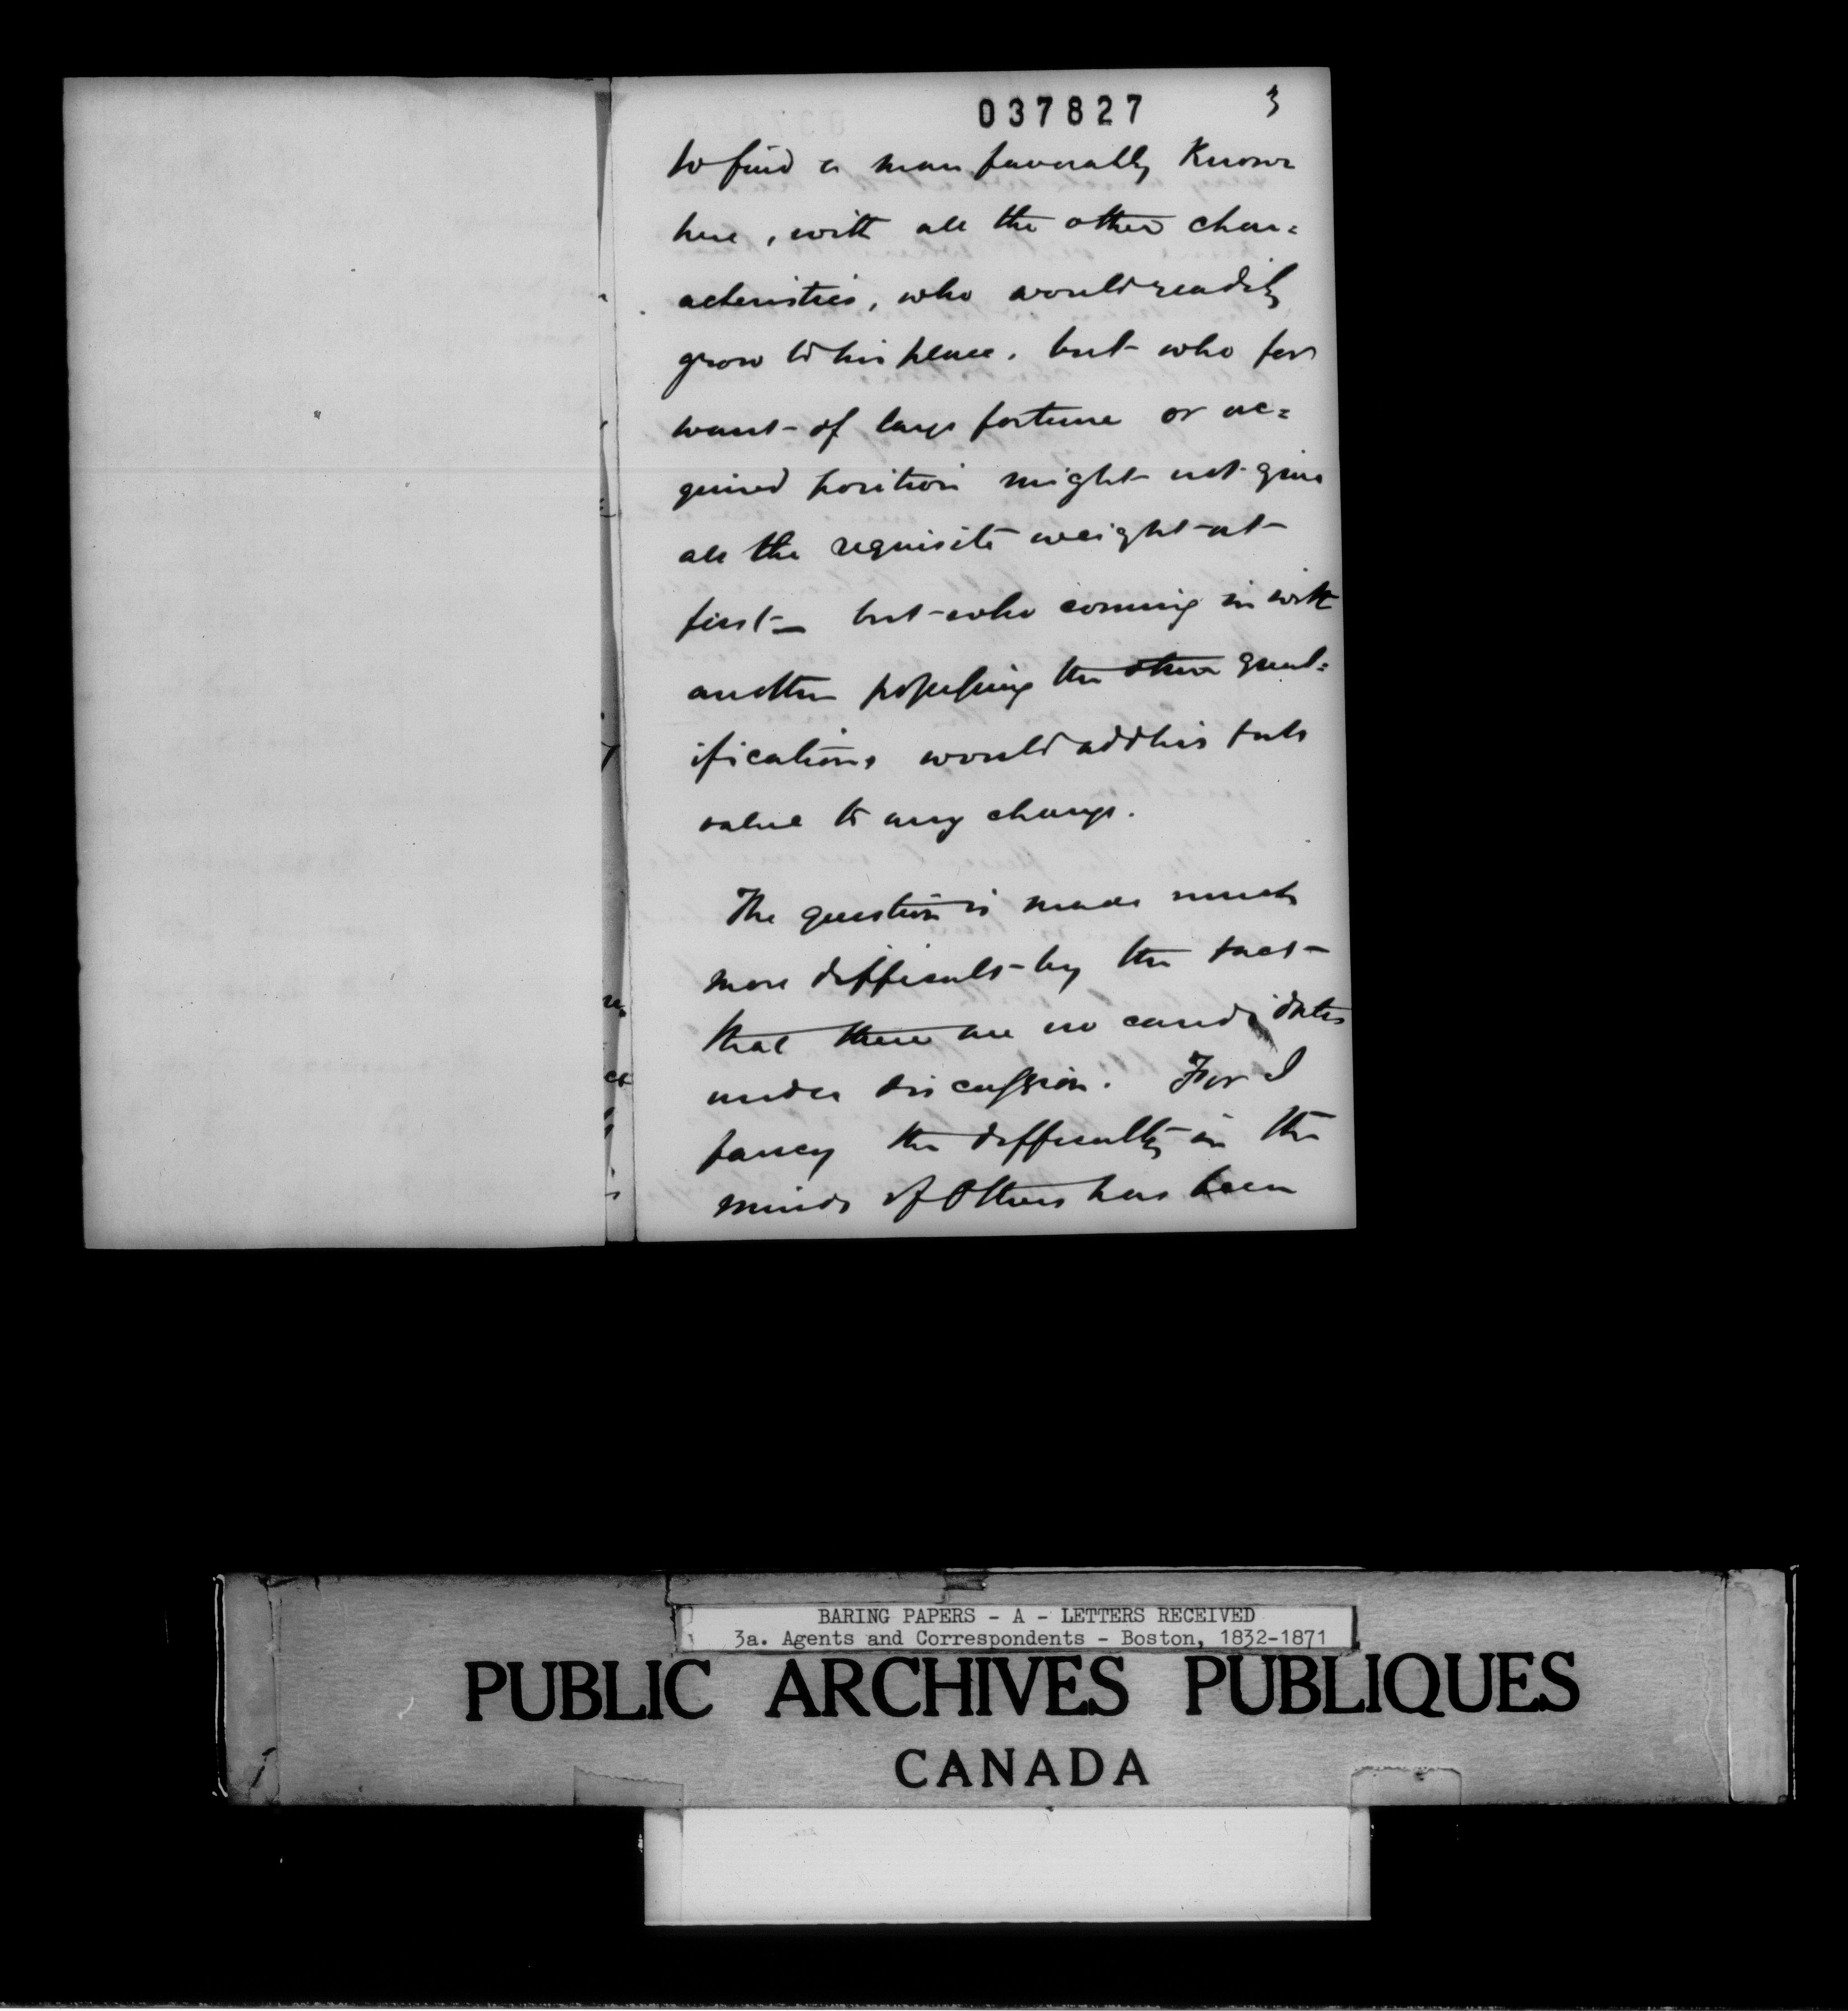 037827
3
to find a man favorably Known
here, with all the other char=
acteristics, who would readily
grow to his place, but who for
want of large fortune or ac=
quired position might not give
all the requisite weight at
first — but who coming in with
another possessing the other qual=
ifications would add his full
value to any change.
The question is made much
more difficult by the fact
that there are no candidates
under discussion. For I
fancy the difficulty in the
minds of others has been
BARING PAPERS - A - LETTERS RECEIVED
3a. Agents and Correspondents - Boston, 1832-1871
PUBLIC ARCHIVES PUBLIQUES
CANADA